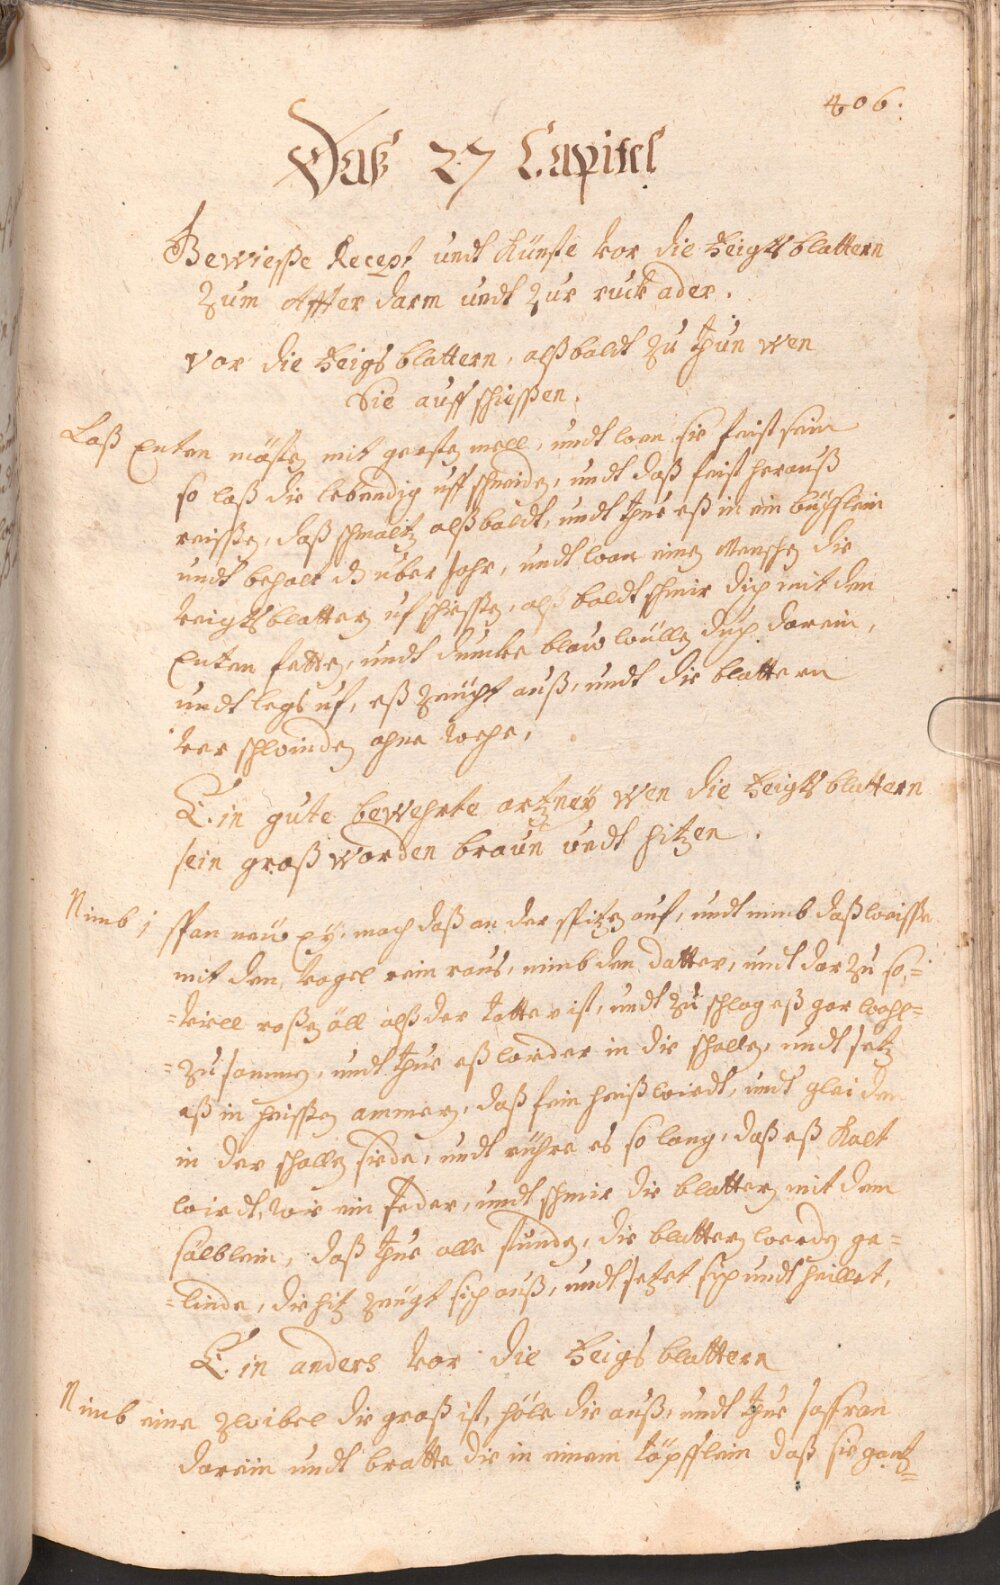 406.
Daß 27 Capitel
Bewiesße Recept undt Künste vor die veigtsblattern
zum Affter darm undt zur ruck ader.
vor die veigs blattern, alßbaldt zu thun wen
Sie auff schießen.
Laß Enten mästen mit gersten mell, undt wen sie feist sein
so laß die lebendig uff schneiden, undt daß feist herauß
reissen, daß schmaltz alßbaldt, undt thue eß in ein büchslein
undt behalt dß uber Jahr, undt wan einen Menschen die
veigtsblattern uf schiessen, alß baldt schmir dich mit den
Enten fetten, undt duncke blaw wüllen duch darein,
undt legs uf, eß zeücht auß, undt die blattern
ver schwinden ohne wehe,
Ein gute bewehrte artzney wen die veigtsblattern
sein groß worden braun undt hitzen.
Nimb j span neü ey. mach daß an der spitzen auf, undt nimb daß weisse
mit den vogel rein raus, nimb den datter, undt dar zu so,=
=viell roßen öll alß der totter ist, undt zu schlag eß gar wohl=
=zusammen, undt thue eß wider in die schallen, undt setz
eß in heissen ammern, daß fein heiß wirdt, undt glei den
in der schallen siede, undt rühre es so lang, daß eß kalt
wirdt, wie ein feder, undt schmir die blattern mit dem
sälblein, daß thue alle stunden, die blattern werden ge=
=linde, die hitz zeügt sich auß, undt setzet sich undt heillet,
Ein anders vor die veigs blattern
Nimb eine zwibel die groß ist, höle die auß, undt thue saffran
darein undt bratte die in einem töpfflein daß sie gantz=